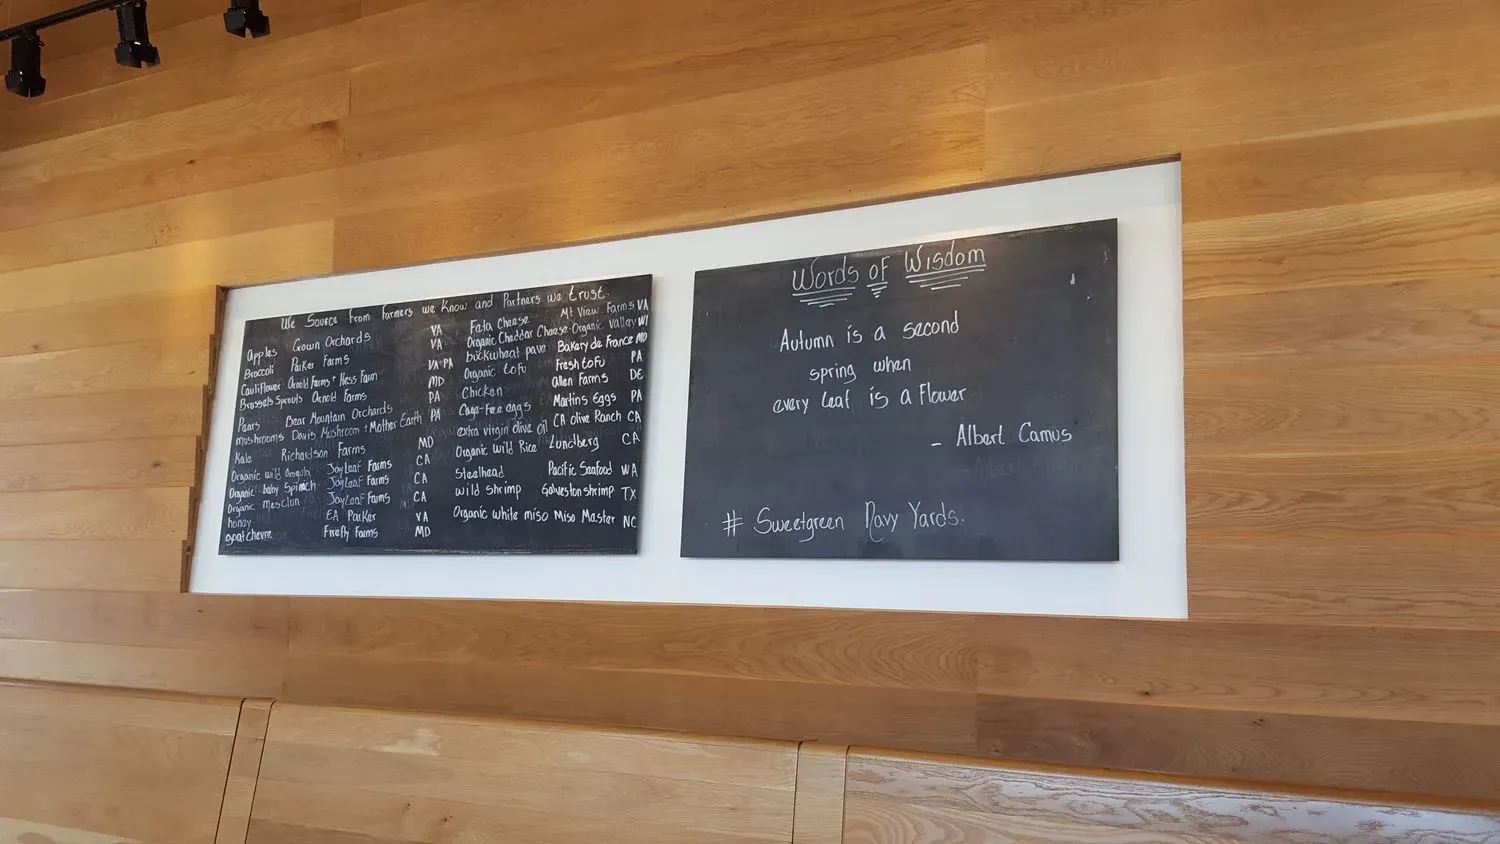 We Source from Farmers we Know and Partners we trust.
Apples Gown Orchards VA
Broccoli Parker Farms VA
Cauliflower Arnold Farms + Hess Farm VA PA
Brussels Sprouts Arnold Farms MD
Pears Bear Mountain Orchards PA
mushrooms Davis Mushroom + Mother Earth PA
Kale Richardson Farms MD
Organic wild Arugula JayLeaf Farms CA
Organic baby Spinach JayLeaf Farms CA
Organic Mesclun JayLeaf Farms CA
honey EA Parker VA
goat chevre Firefly Farms MD
Feta Cheese Mt View Farms VA
Organic Cheddar Cheese Organic Valley WI
buckwheat pave Bakery de France MD
Organic tofu Fresh tofu PA
Chicken Allen Farms DE
Cage-free eggs Martins Eggs PA
extra virgin olive oil CA olive Ranch CA
Organic Wild Rice Lundberg CA
Steelhead Pacific Seafood WA
wild shrimp Galveston shrimp TX
Organic white miso Miso Master NC
Words of Wisdom
Autumn is a second
spring when
every leaf is a Flower
- Albert Camus
# Sweetgreen Navy Yards.